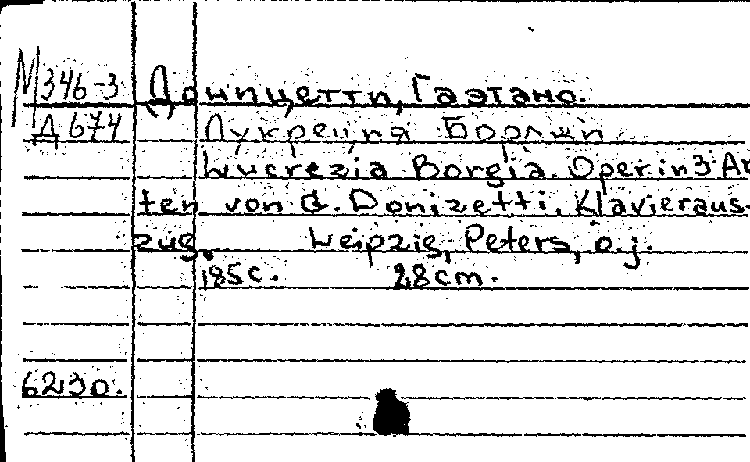 М346-3 Доницетти, Гаэтано.
Д674 Лукреция Борджи
Lucrezia Borgia. Oper in 3 Ak
ten von G. Donizetti. Klavieraus-
zug. Leipzig, Peters, o.j.
185 c. 28 cm.
6230.